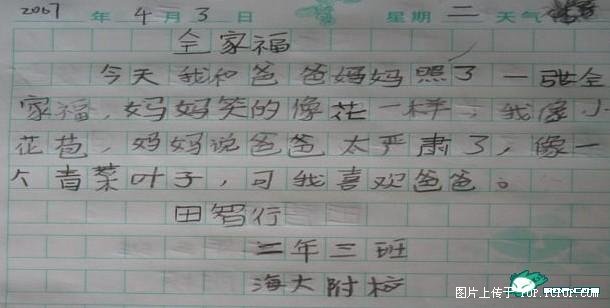 2007 年 4 月 3 日 星期 二 天气
全家福
今天我和爸爸妈妈照了一张全
家福,妈妈笑的像花一样,我像小
花苞,妈妈说爸爸太严肃了,像一
个青菜叶子,可我喜欢爸爸。
田智行
二年三班
海大附校
图片上传于 TOP.TCTOP.COM